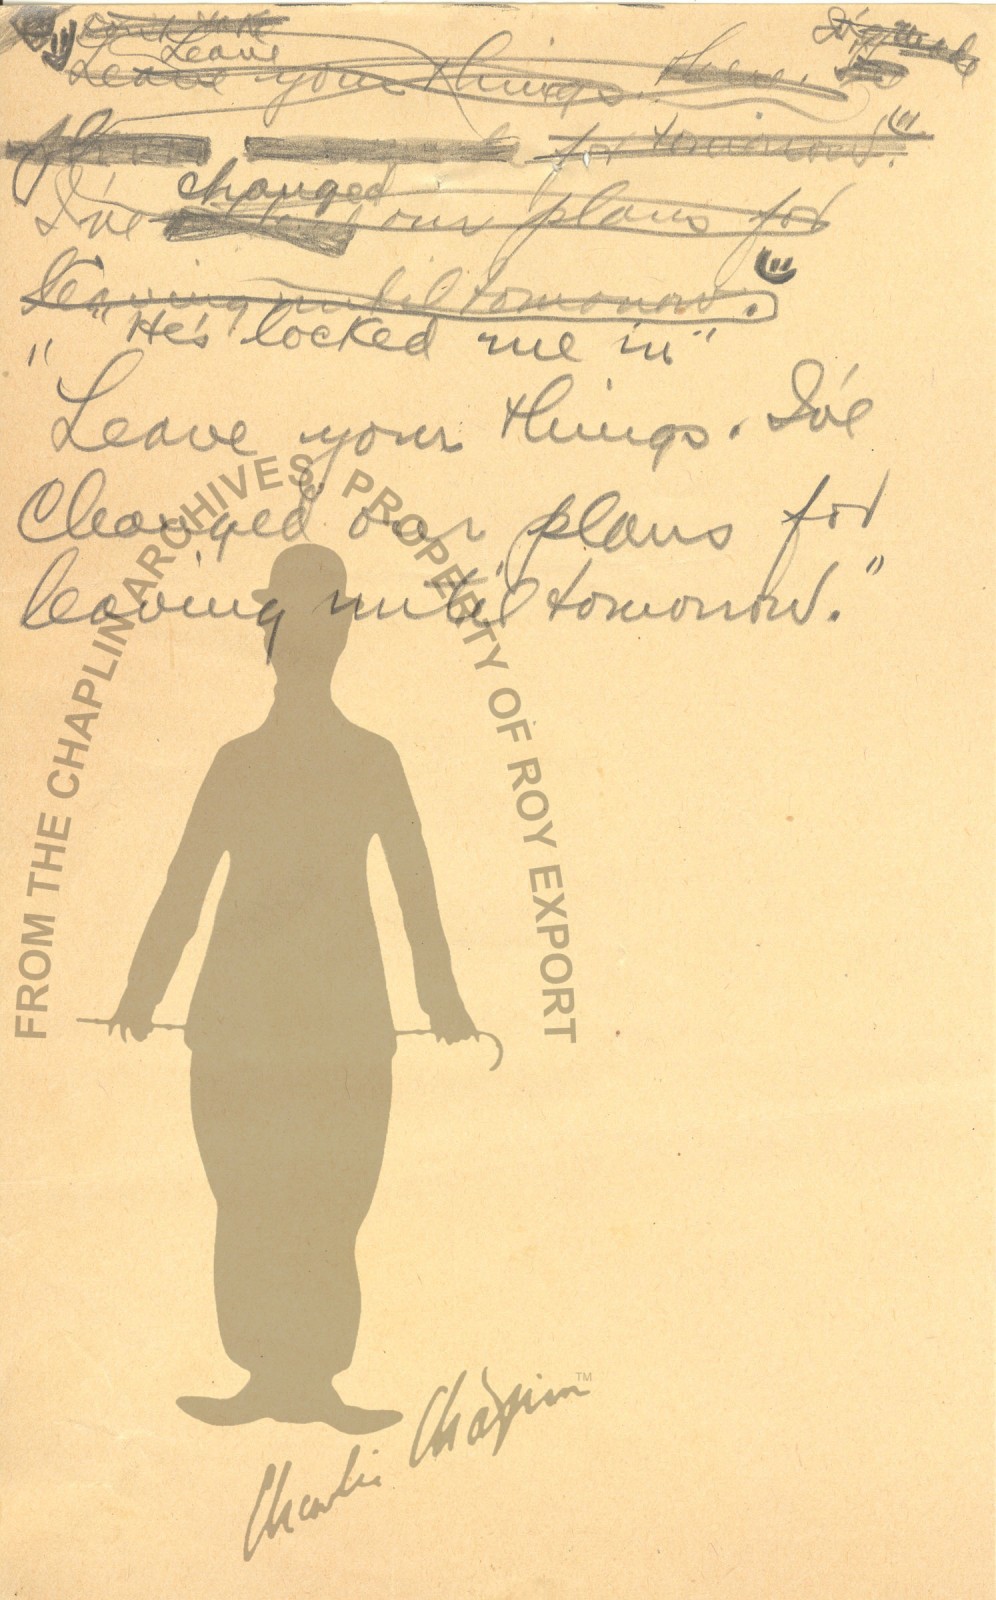 Leave
Leave your things. there.
for tomorrow."
changed
I've our plans for
leaving until tomorrow."
"He's locked me in"
"Leave your things. I've
changed our plans for
leaving until tomorrow."
FROM THE CHAPLIN ARCHIVES. PROPERTY OF ROY EXPORT
Charlie Chaplin™